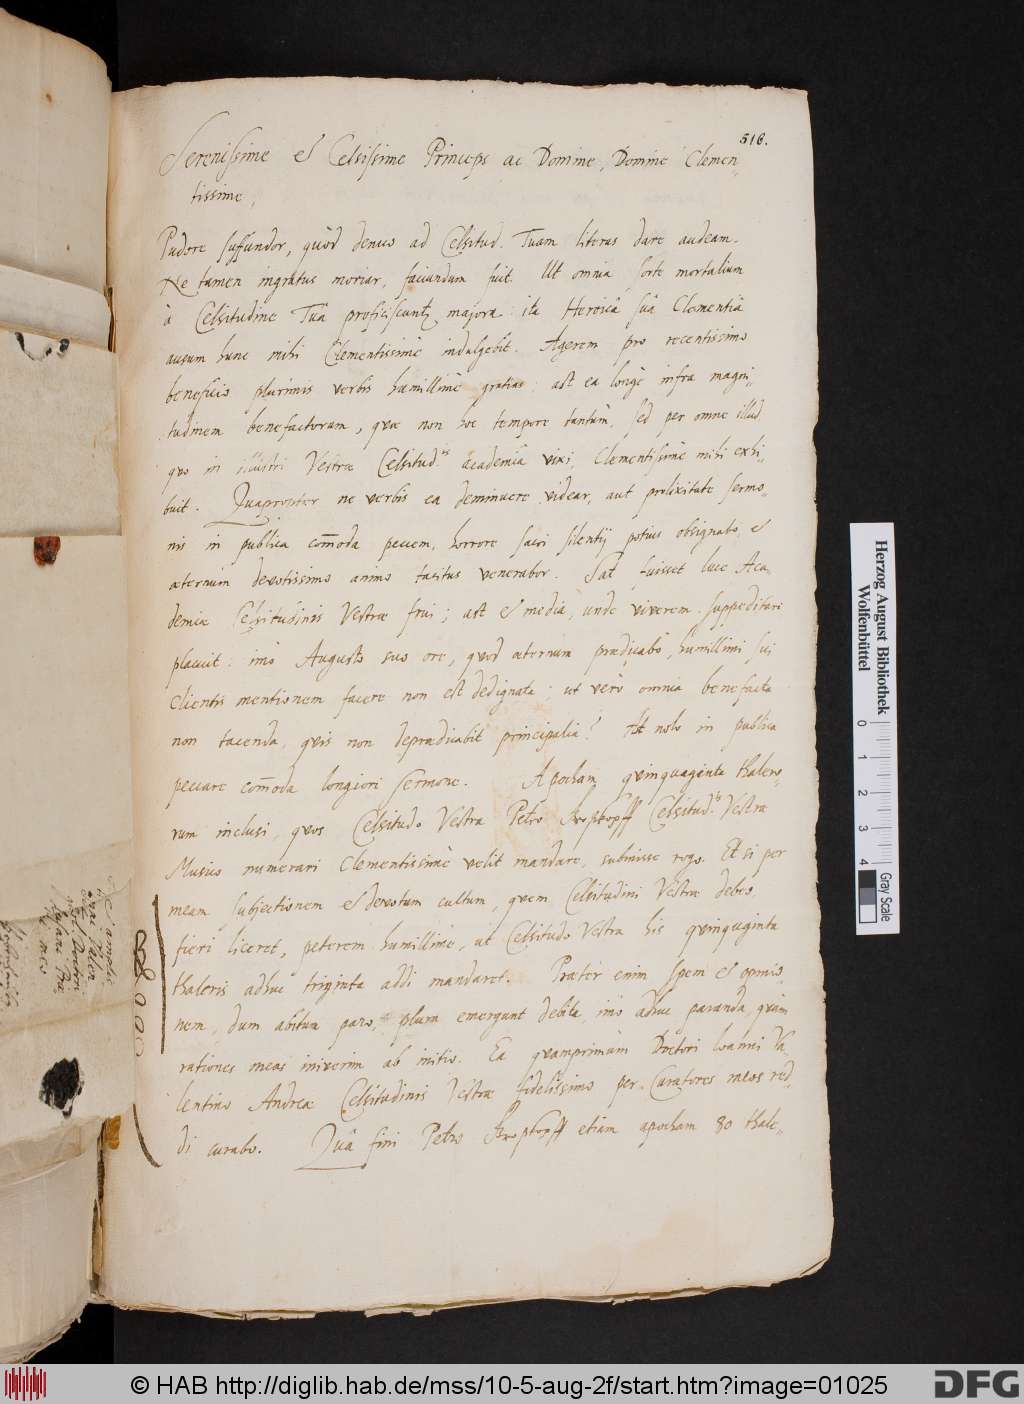 516.
Serenissime et Celsissime Princeps ac Domine, Domine Clemen„
tissime,
Pudore suffundor, quòd denuo ad Celsitud. Tuam literas dare audeam.
Ne tamen ingratus moriar, faciundum fuit. Ut omnia sorte mortalium
à Celsitudine Tuâ proficiscuntur majora: ita Heroicâ suâ Clementiâ
ausum hunc mihi Clementissimè indulgebit. Agerem pro recentissimo
beneficio plurimis verbis humillimè gratias: ast ea longè infra magni„
tudinem benefactorum, quæ non hoc tempore tantùm, sed per omne illud
quo in illustri Vestræ Celsitud.is academia vixi, Clementissimè mihi exhi„
buit. Quapropter ne verbis ea deminuere videar, aut prolixitate sermo„
nis in publica com̄oda peccem, horrore sacri silentij potius obsignabo, et
æternùm devotissimo animo tacitus venerabor. Sat fuisset luce Aca„
demiæ Celsitudinis Vestræ frui; ast et media, unde viverem suppeditari
placuit: imò Augusto suo ore, quod æternùm prædicabo, humillimi sui
Clientis mentionem facere non est dedignata; ut verò omnia benefacta
non tacenda, quis non deprædicabit principalia? At nolo in publica
peccare com̄oda longiori sermone. Apocham quinquaginta thalero„
rum inclusi, quos Celsitudo Vestra Petro Kropkopff Celsitud.is Vestræ
Musico numerari Clementissimè velit mandare, submisse rogo. Et si per
meam subjectionem et devotum cultum, quem Celsitudini Vestræ debeo,
fieri liceret, peterem humillime, ut Celsitudo Vestra his quinquaginta
thaleris adhuc triginta addi mandaret. Præter enim spem et opinio„
nem, dum abitum paro, plura emergunt debita, imò adhuc paranda, quàm
rationes meas iniverim ab initio. Ea quamprimùm Doctori Ioanni Va„
lentino Andreæ Celsitudinis Vestræ fidelissimo per Curatores meos red„
di curabo. Quâ fini Petro Kropkopff etiam apocham 80 thale„
Herzog August Bibliothek
Wolfenbüttel
0 1 2 3 4
Gray Scale
© HAB http://diglib.hab.de/mss/10-5-aug-2f/start.htm?image=01025
DFG